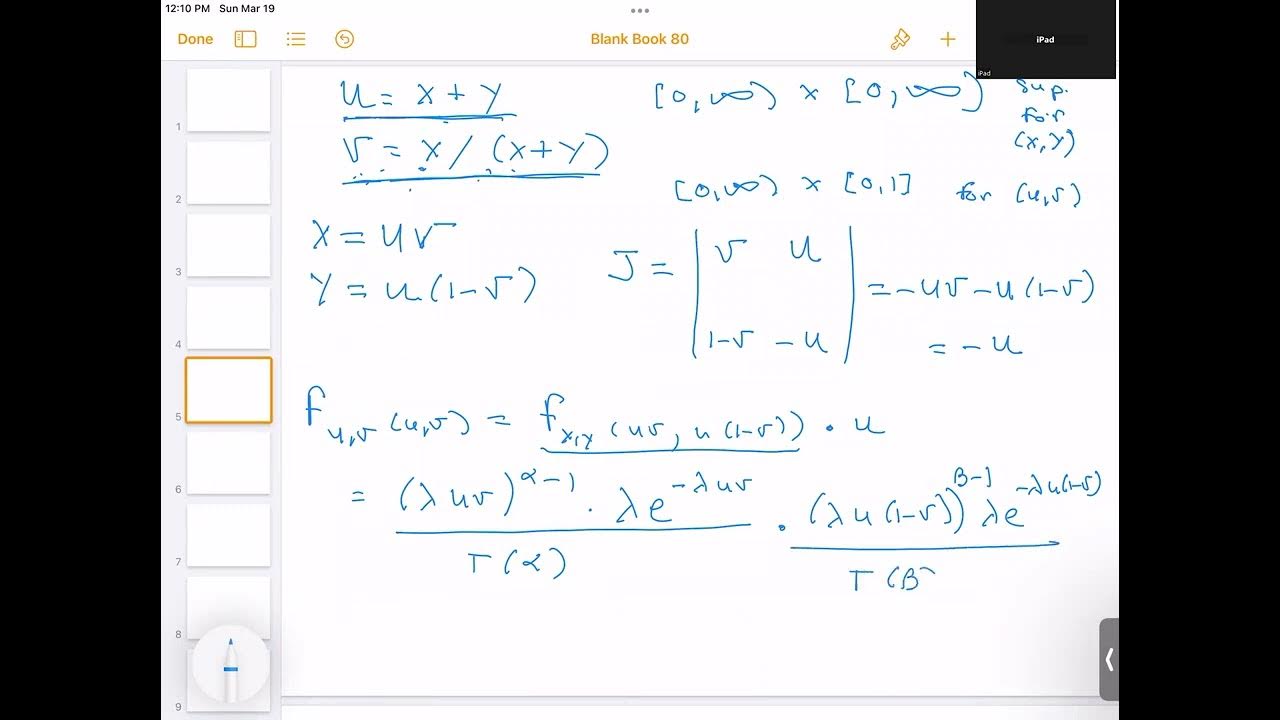 12:10 PM Sun Mar 19
Done
Blank Book 80
iPad
iPad
1
2
3
4
5
6
7
8
9
U = X + Y
V = X / (X + Y)
[0,∞) × [0,∞) sup. for (X,Y)
[0,∞) × [0,1] for (u,v)
X = UV
Y = u(1-v)
J = | v u |
| 1-v -u |
= -uv - u(1-v)
= -u
f_{u,v}(u,v) = f_{X,Y}(uv, u(1-v)) · u
= (λuv)^{α-1} · λe^{-λuv} / Γ(α) · (λu(1-v))^{β-1} λe^{-λu(1-v)} / Γ(β